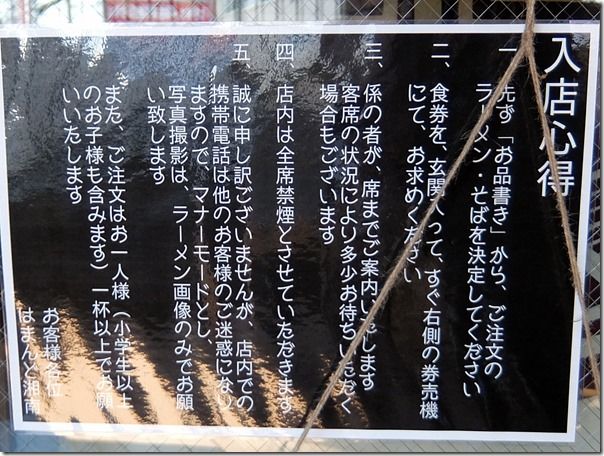 入店心得
一、先ず「お品書き」から、ご注文の
ラーメン・そばを決定してください
二、食券を、玄関入って、すぐ右側の券売機
にて、お求めください
三、係の者が、席までご案内いたします
客席の状況により多少お待ちいただく
場合もございます
四、店内は全席禁煙とさせていただきます
五、誠に申し訳ございませんが、店内での
携帯電話は他のお客様のご迷惑になり
ますので、マナーモードとし、
写真撮影は、ラーメン画像のみでお願
い致します
また、ご注文はお一人様（小学生以上
のお子様も含みます）一杯以上でお願
いいたします
お客様各位
はまんど湘南